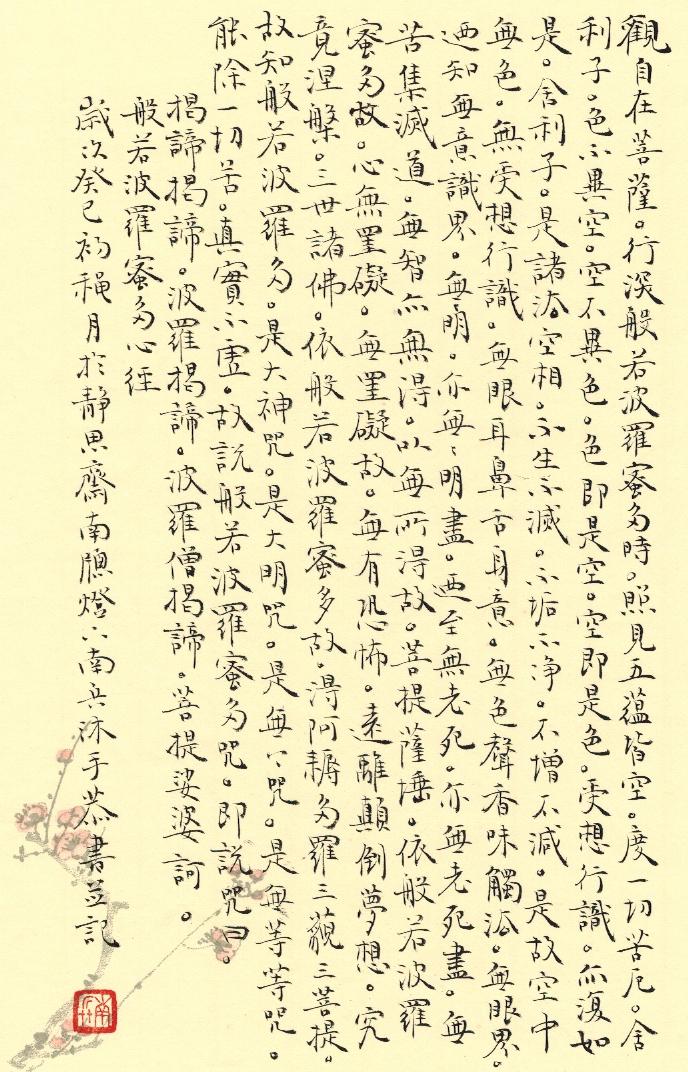 觀自在菩薩。行深般若波羅蜜多時。照見五蘊皆空。度一切苦厄。舍
利子。色不異空。空不異色。色即是空。空即是色。受想行識。亦復如
是。舍利子。是諸法空相。不生不滅。不垢不净。不增不減。是故空中
無色。無受想行識。無眼耳鼻舌身意。無色聲香味觸法。無眼界。
迺知無意識界。無明。亦無〻明盡。迺至無老死。亦無老死盡。無
苦集滅道。無智亦無得。以無所得故。菩提薩埵。依般若波羅
蜜多故。心無罣礙。無罣礙故。無有恐怖。遠離顛倒夢想。究
竟涅槃。三世諸佛。依般若波羅蜜多故。得阿耨多羅三藐三菩提。
故知般若波羅多。是大神咒。是大明咒。是無〻咒。是無等等咒。
能除一切苦。真實不虛。故說般若波羅蜜多咒。即說咒曰。
揭諦揭諦。波羅揭諦。波羅僧揭諦。菩提娑婆訶。
般若波羅蜜多心經
歲次癸巳初穐月於靜思齋南牕燈下南兵沐手恭書並記
南兵